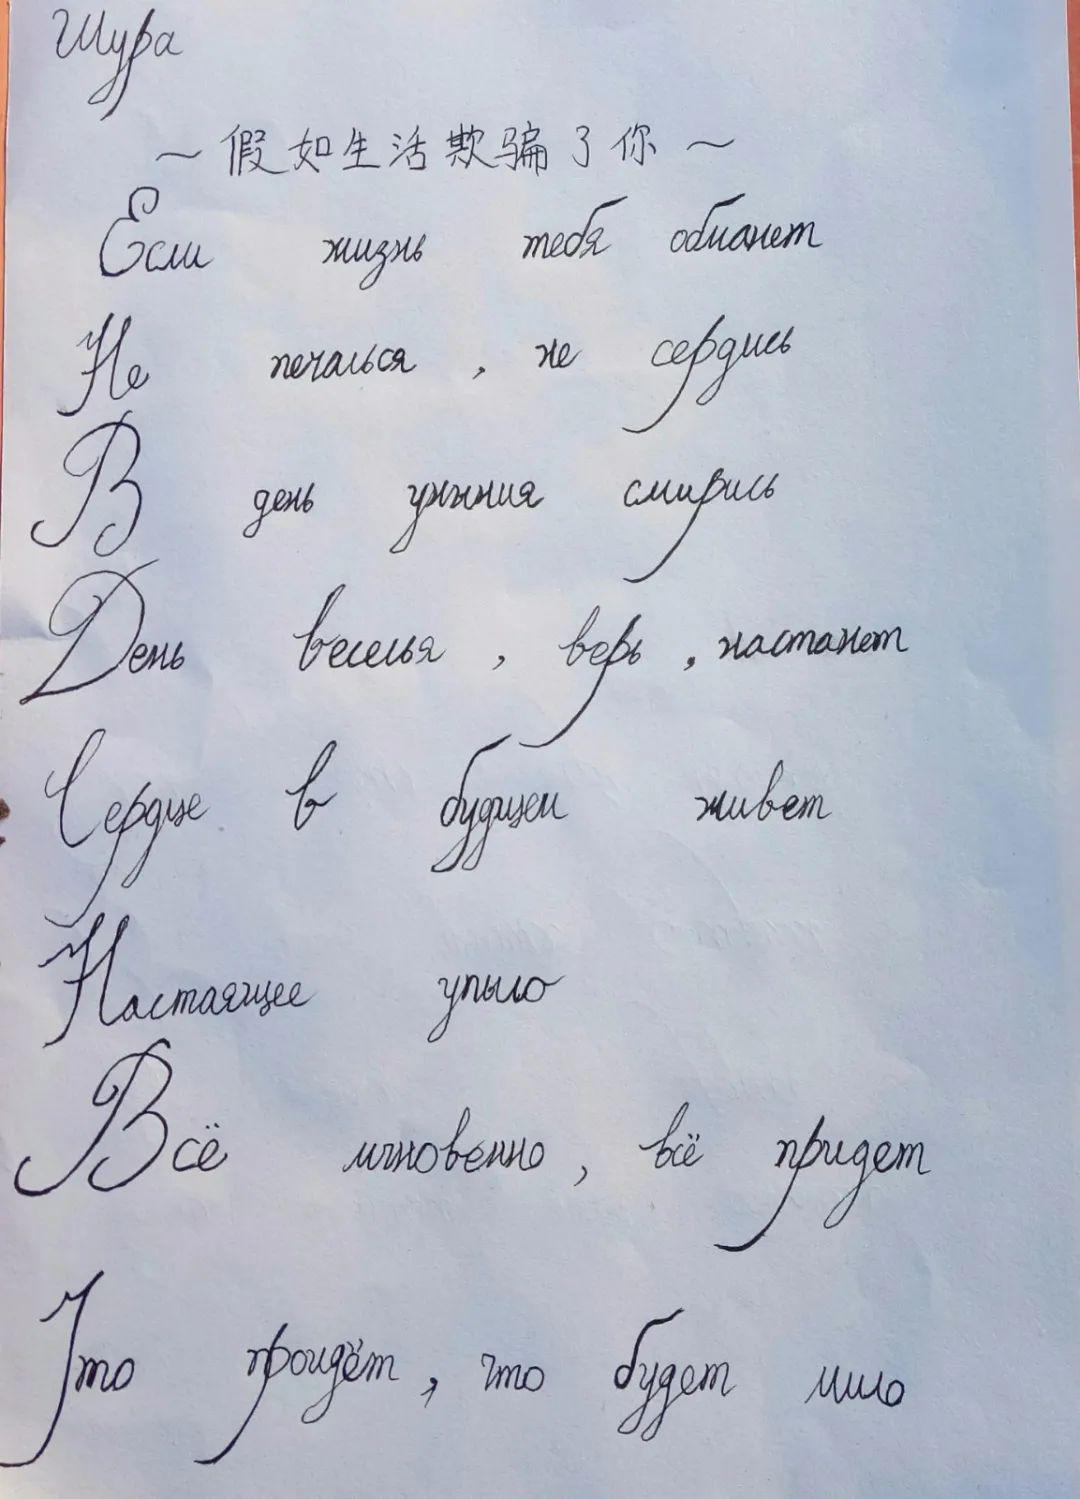 Шура
~假如生活欺骗了你~
Если жизнь тебя обманет
Не печалься, не сердись
В день уныния смирись
День веселья, верь, настанет
Сердце в будущем живет
Настоящее уныло
Всё мгновенно, всё придет
Что пройдёт, что будет мило